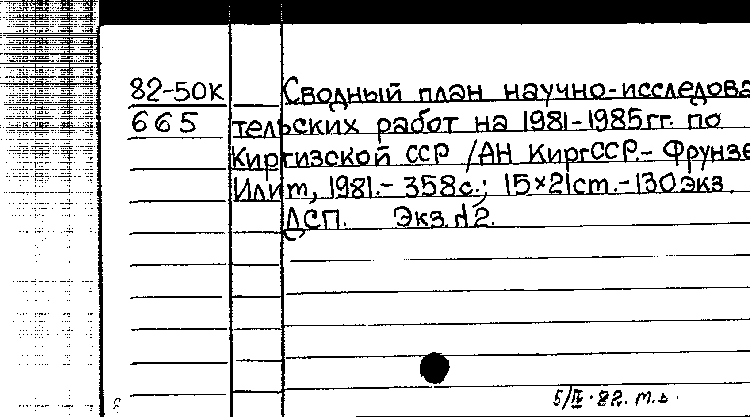 82-50К Сводный план научно-исследова
665 тельских работ на 1981-1985гг. по
Киргизской ССР /АН КиргССР.- Фрунзе
Илим, 1981.- 358с.; 15×21см.-130экз.
ДСП. Экз.№2.
5/IV·82.